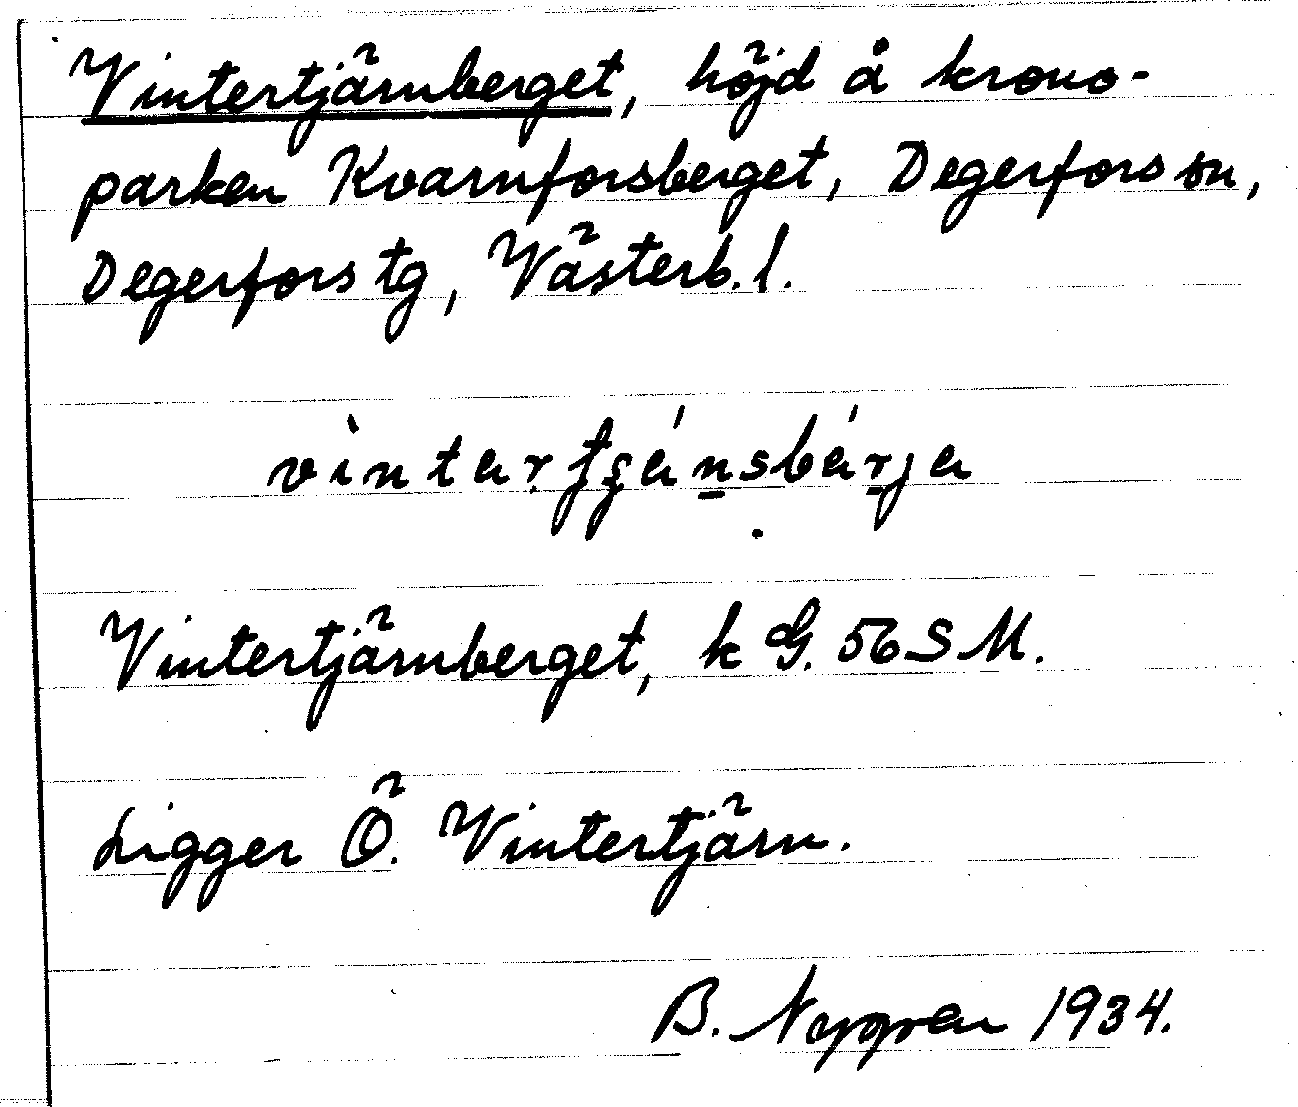 Vintertjärnberget, höjd å krono-
parken Kvarnforsberget, Degerfors sn,
Degerfors tg, Västerb. l.
Vintertjärnberget, k G. 56 S M.
Ligger Ö. Vintertjärn.
B. Nygren 1934.